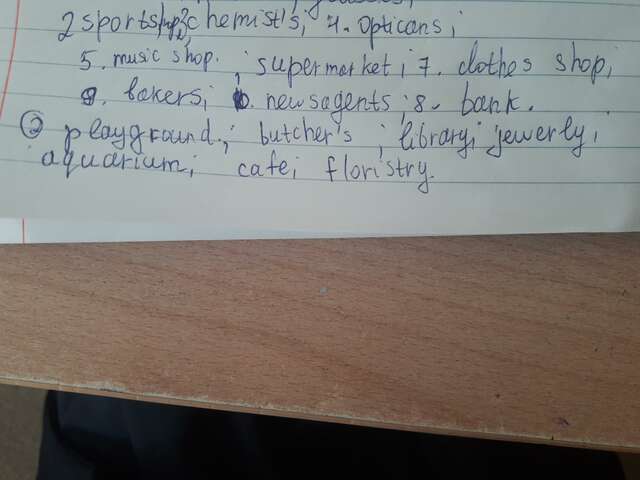 2 sports chemist's; 4. Opticans;
5. music shop. ; supermarket; 7. clothes shop;
9. bakers; newsagents; 8. bank.
② playground.; butcher's ; library; jewerly;
aquarium; cafe; floristry.